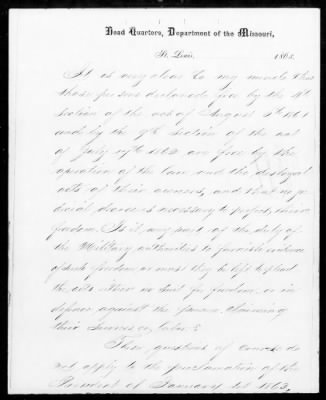 Head Quarters, Department of the Missouri,
St. Louis, 1863.
It is very clear to my mind that
those persons declared free by the 4th
section of the act of August 6th 1861
and by the 9th section of the act
of July 17th 1862 are free by the
operation of the law and the disloyal
acts of their owners, and that no ju
dicial decree is necessary to perfect their
freedom. Is it any part of the duty of
the Military authorities to furnish evidence
of such freedom or must they be left to plead
the acts either in suit for freedom, or in
defence against the person claiming
their services or labor?
These questions of course do
not apply to the proclamation of the
President of January 1st 1863,